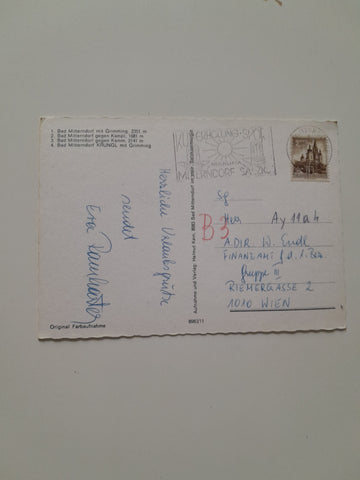 1. Bad Mitterndorf mit Grimming, 2351 m
2. Bad Mitterndorf gegen Kampl, 1681 m
3. Bad Mitterndorf gegen Kamm, 2141 m
4. Bad Mitterndorf KRUNGL mit Grimming
Herrliche Urlaubsgrüße
sendet
Eva
Original Farbaufnahme
Aufnahme und Verlag: Helmut Kern, 8983 Bad Mitterndorf im steir. Salzkammergut
896211
ERHOLUNG-SPORT
MITTERNDORF
Sg
Herr Ay 11a4
B3
ADIR. W. Endl
FINANZAMT f. d. 1. Bez.
Gruppe III
RIEMERGASSE 2
1010 WIEN